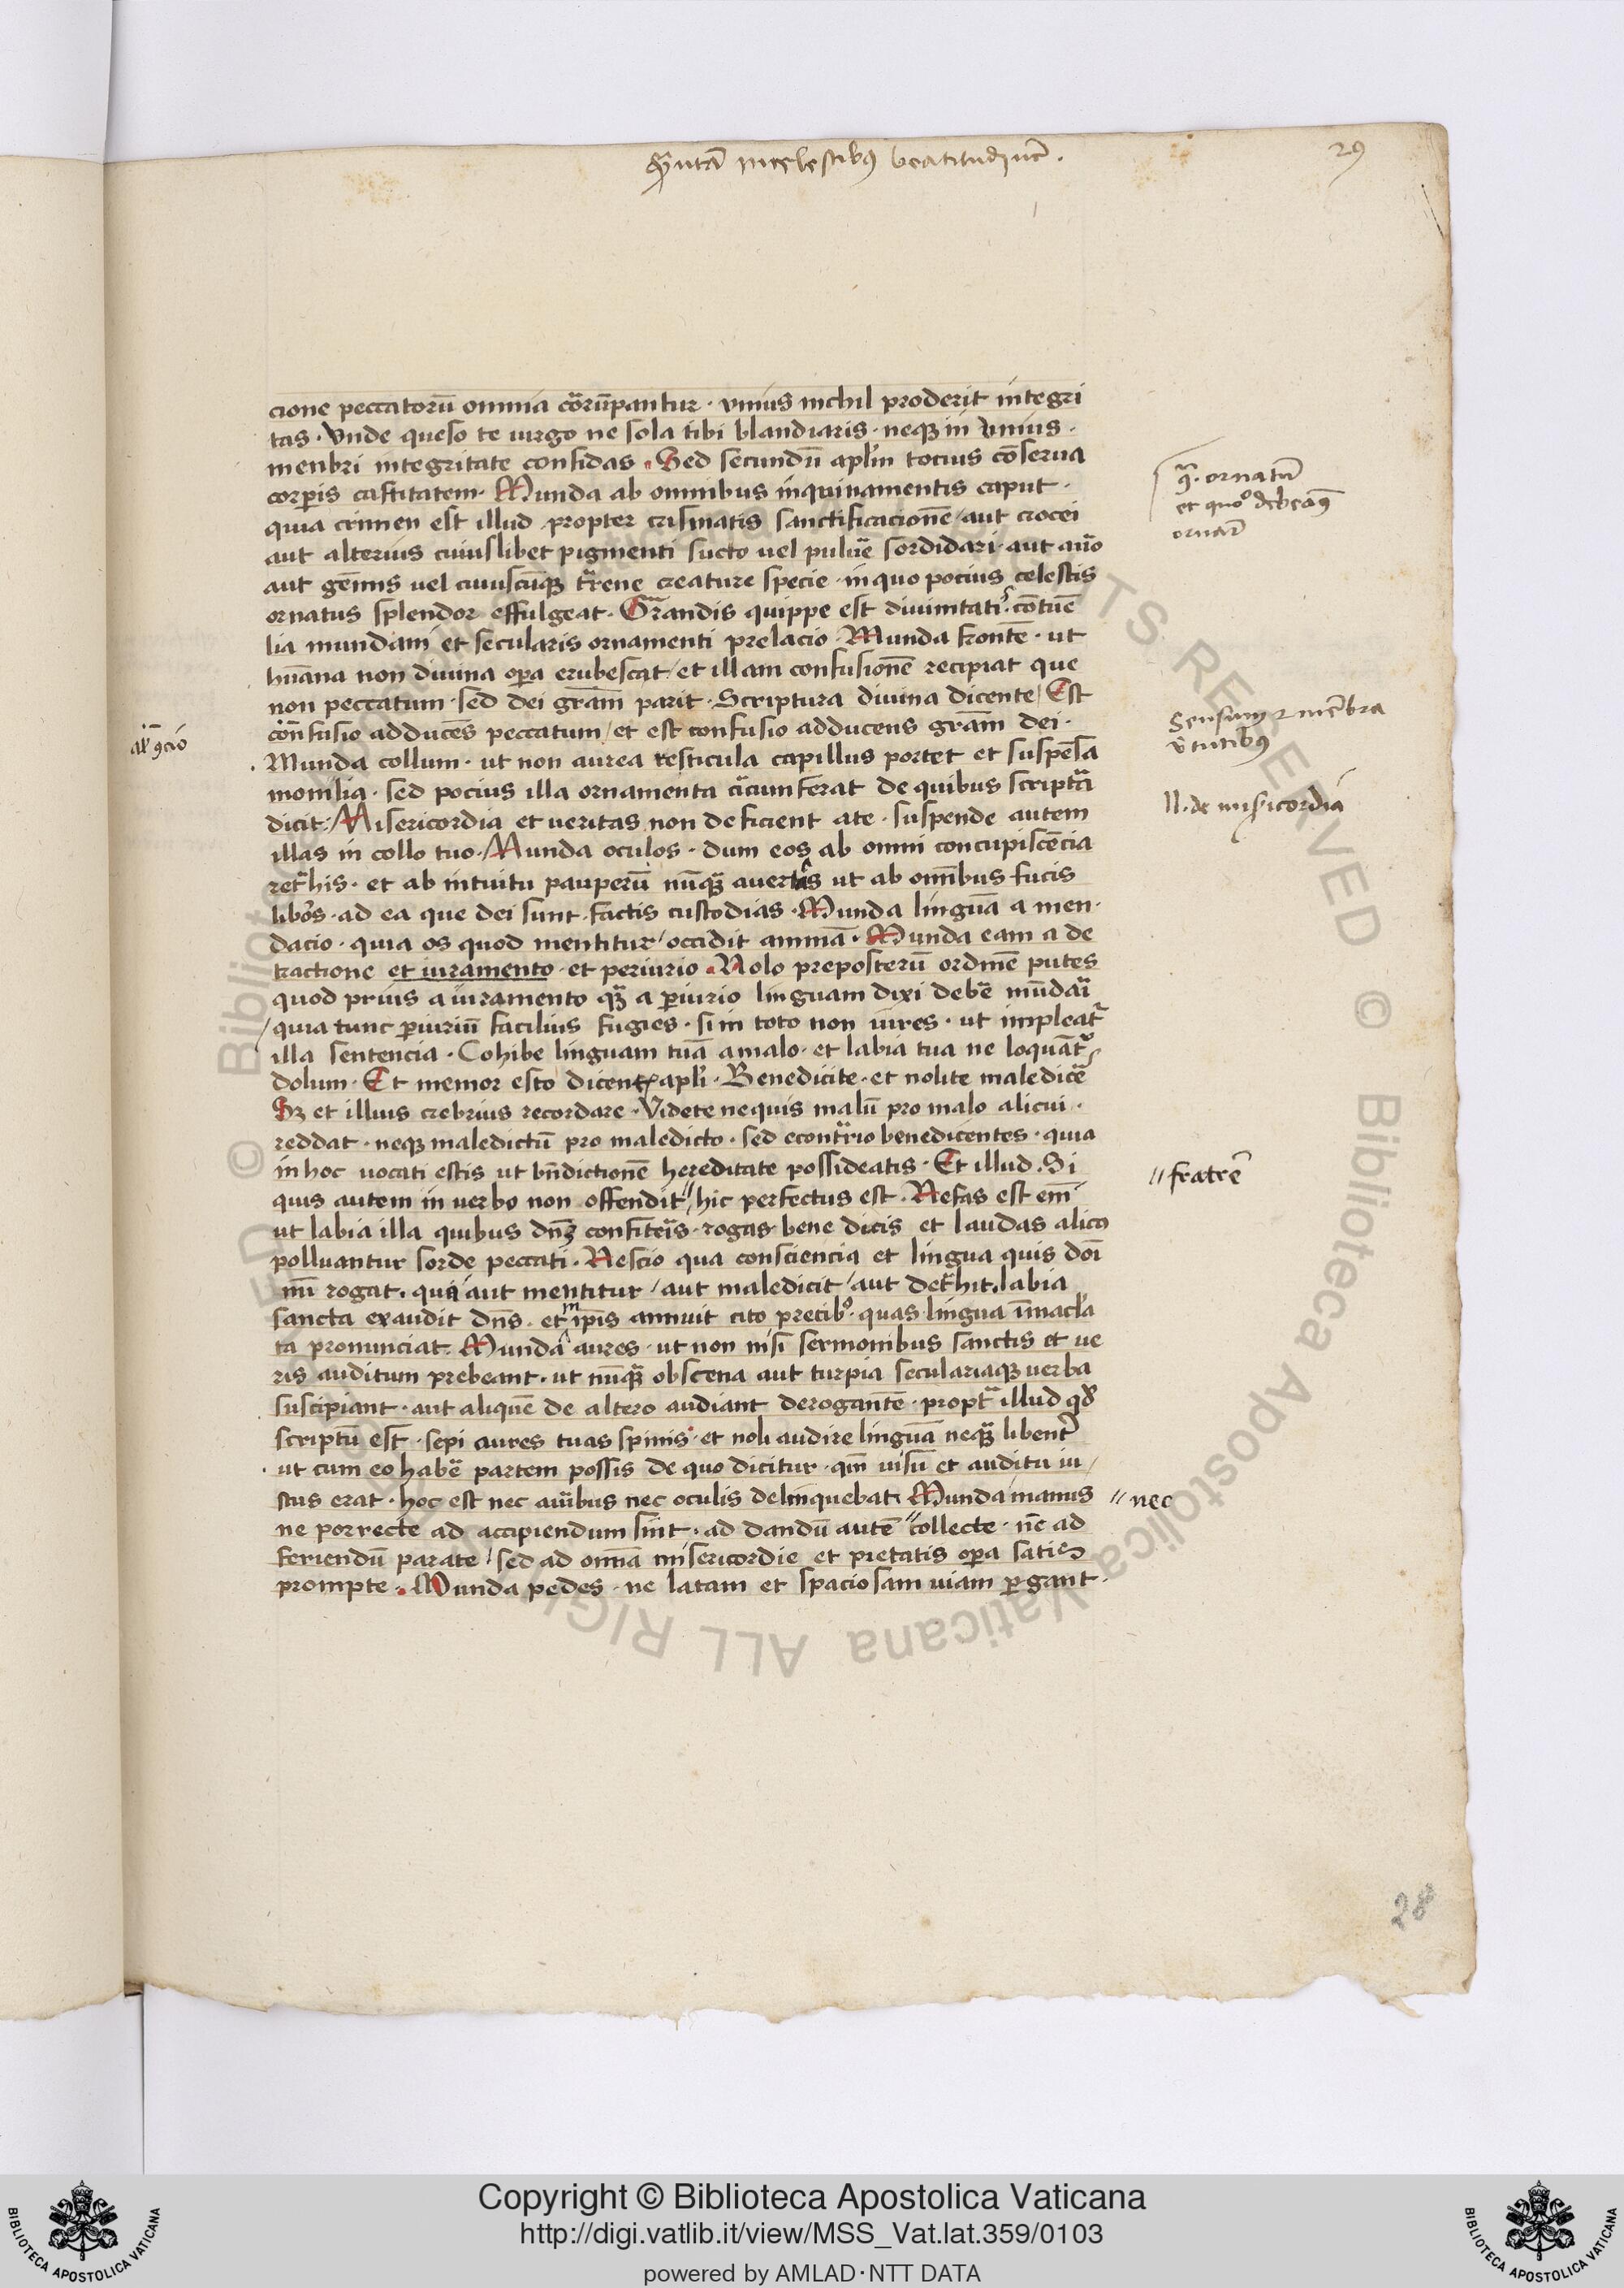 29
cione peccatorū omnia cōrūpantur · vnius nichil proderit integri
tas · Vnde queso te uirgo ne sola tibi blandiaris · neqꝫ in vnius ·
menbri integritate confidas · Sed secundū aplm̄ tocius cōserua
corꝑis castitatem · Munda ab omnibus inquinamentis caput ·
quia crimen est illud propter crismatis sanctificacionē / aut crocei
aut alterius cuiuslibet pigmenti succo uel puluē sordidari · aut auro
aut gem̄is uel cuiuscūqꝫ t̄rene creature specie · in quo pocius celestis
ornatus splendor effulgeat · Grandis quippe est diuinitatis contūe
lia mundani et secularis ornamenti prelacio · Munda frontē · ut
hūana non diuina oꝑa erubescat / et illam confusionē recipiat que
non peccatum · sed dei grām parit · Scriptura diuina dicente / Est
confusio adducēs peccatum / et est confusio adducens grām dei ·
Munda collum · ut non aurea resticula capillus portet et suspēsa
monilia · sed pocius illa ornamenta circunferat de quibus script̄a
dicit · Misericordia et ueritas non deficient a te · suspende autem
illas in collo tuo · Munda oculos · dum eos ab omni concupiscēcia
ret̄his · et ab intuitu pauperū nūqꝫ auertas ut ab omībus fucis
libōs · ad ea que dei sunt factis custodias · Munda linguā a men
dacio · quia os quod mentitur / occidit animā · Munda eam a de
tractione et iuramento · et periurio · Nolo preposterū ordinē putes
quod prius a iuramento qꝫ a ꝑiurio linguam dixi debē mūdari
/ quia tunc ꝑiuriū facilius fugies · si in toto non iures · ut impleat̄
illa sentencia · Cohibe linguam tuā a malo · et labia tua ne loquāt̄
dolum · Et memor esto dicentꝭ apli · Benedicite · et nolite maledicē
Sꝫ et illius crebrius recordare · Videte ne quis malū pro malo alicui ·
reddat · neqꝫ maledictū pro maledicto · sed econt̄rio benedicentes · quia
in hoc uocati estis ut bn̄dictionē hereditate possideatis · Et illud · Si
quis autem in uerbo non offendit // hic perfectus est · Nefas est em̄
ut labia illa quibus dn̄ꝫ confit̄eis · rogas bene dicis et laudas alico
polluantur sorde peccati · Nescio qua consciencia et lingua quis domī
nū rogat · qua aut mentitur / aut maledicit / aut det̄hit · labia
sancta exaudit dn̄s · et m ip̄is annuit cito precibꝰ · quas lingua īmacl̄a
ta pronunciat · Munda aures · ut non nisi sermonibus sanctis et ue
ris auditum prebeant · ut nūqꝫ obscena aut turpia seculariaqꝫ uerba
suscipiant · aut aliquē de altero audiant derogantē · propt̄ illud qd̄
scriptū est · sepi aures tuas spinis · et noli audire linguā neqꝫ libent̄
ut cum eo habē partem possis de quo dicitur · qm̄ uisū et auditu iu /
stus erat · hoc est nec auribus nec oculis delinquebat · Munda manus
ne porrecte ad accipiendum sint · ad dandū autē // collecte · nē ad
feriendū parate / sed ad omīa misericordie et pietatis oꝑa satis
prompte · Munda pedes · ne latam et spaciosam uiam ꝑgant ·
ornatū
et quo debeamꝰ
ornari
al ꝯcio
Sensum ⁊ mēbra
v̄tutibꝰ
de misericordia
// fratrē
// nec
28
© Biblioteca Apostolica Vaticana ALL RIGHTS RESERVED
Copyright © Biblioteca Apostolica Vaticana
http://digi.vatlib.it/view/MSS_Vat.lat.359/0103
powered by AMLAD·NTT DATA
BIBLIOTECA APOSTOLICA VATICANA
BIBLIOTECA APOSTOLICA VATICANA